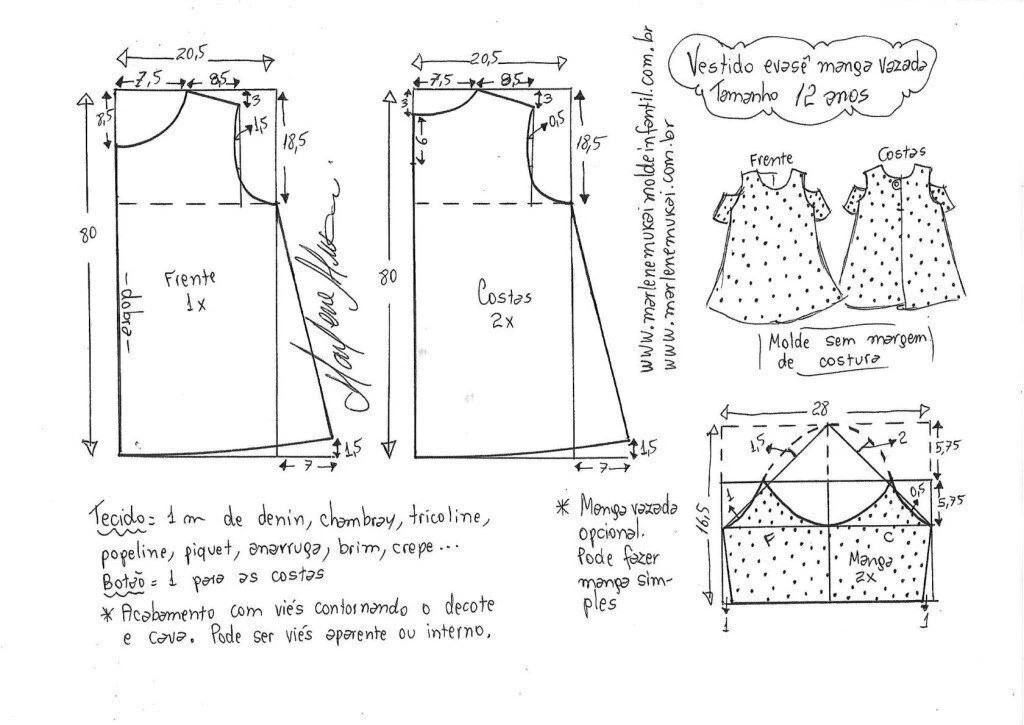 Vestido evasê manga vazada
Tamanho 12 anos
www.marlenemukaimoldeinfantil.com.br
www.marlenemukai.com.br
20,5
7,5
8,5
8,5
3
1,5
18,5
80
Frente
1x
-dobra-
1,5
7
20,5
7,5
8,5
3
3
6
0,5
18,5
80
Costas
2x
1,5
7
Frente
Costas
Molde sem margem
de costura
28
1,5
2
5,75
16,5
1
0,5
5,75
F
C
Manga
2x
1
1
Tecido = 1 m de denin, chambray, tricoline,
popeline, piquet, anarruga, brim, crepe...
Botão = 1 para as costas
* Acabamento com viés contornando o decote
e cava. Pode ser viés aparente ou interno.
* Manga vazada
opcional.
Pode fazer
manga sim-
ples